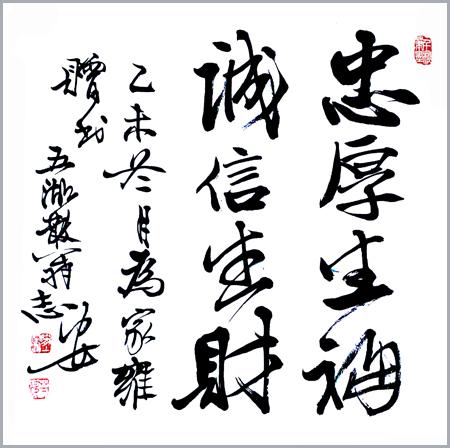 忠厚生福
誠信生財
乙未冬月為家雍
贈
五湖散翁志安